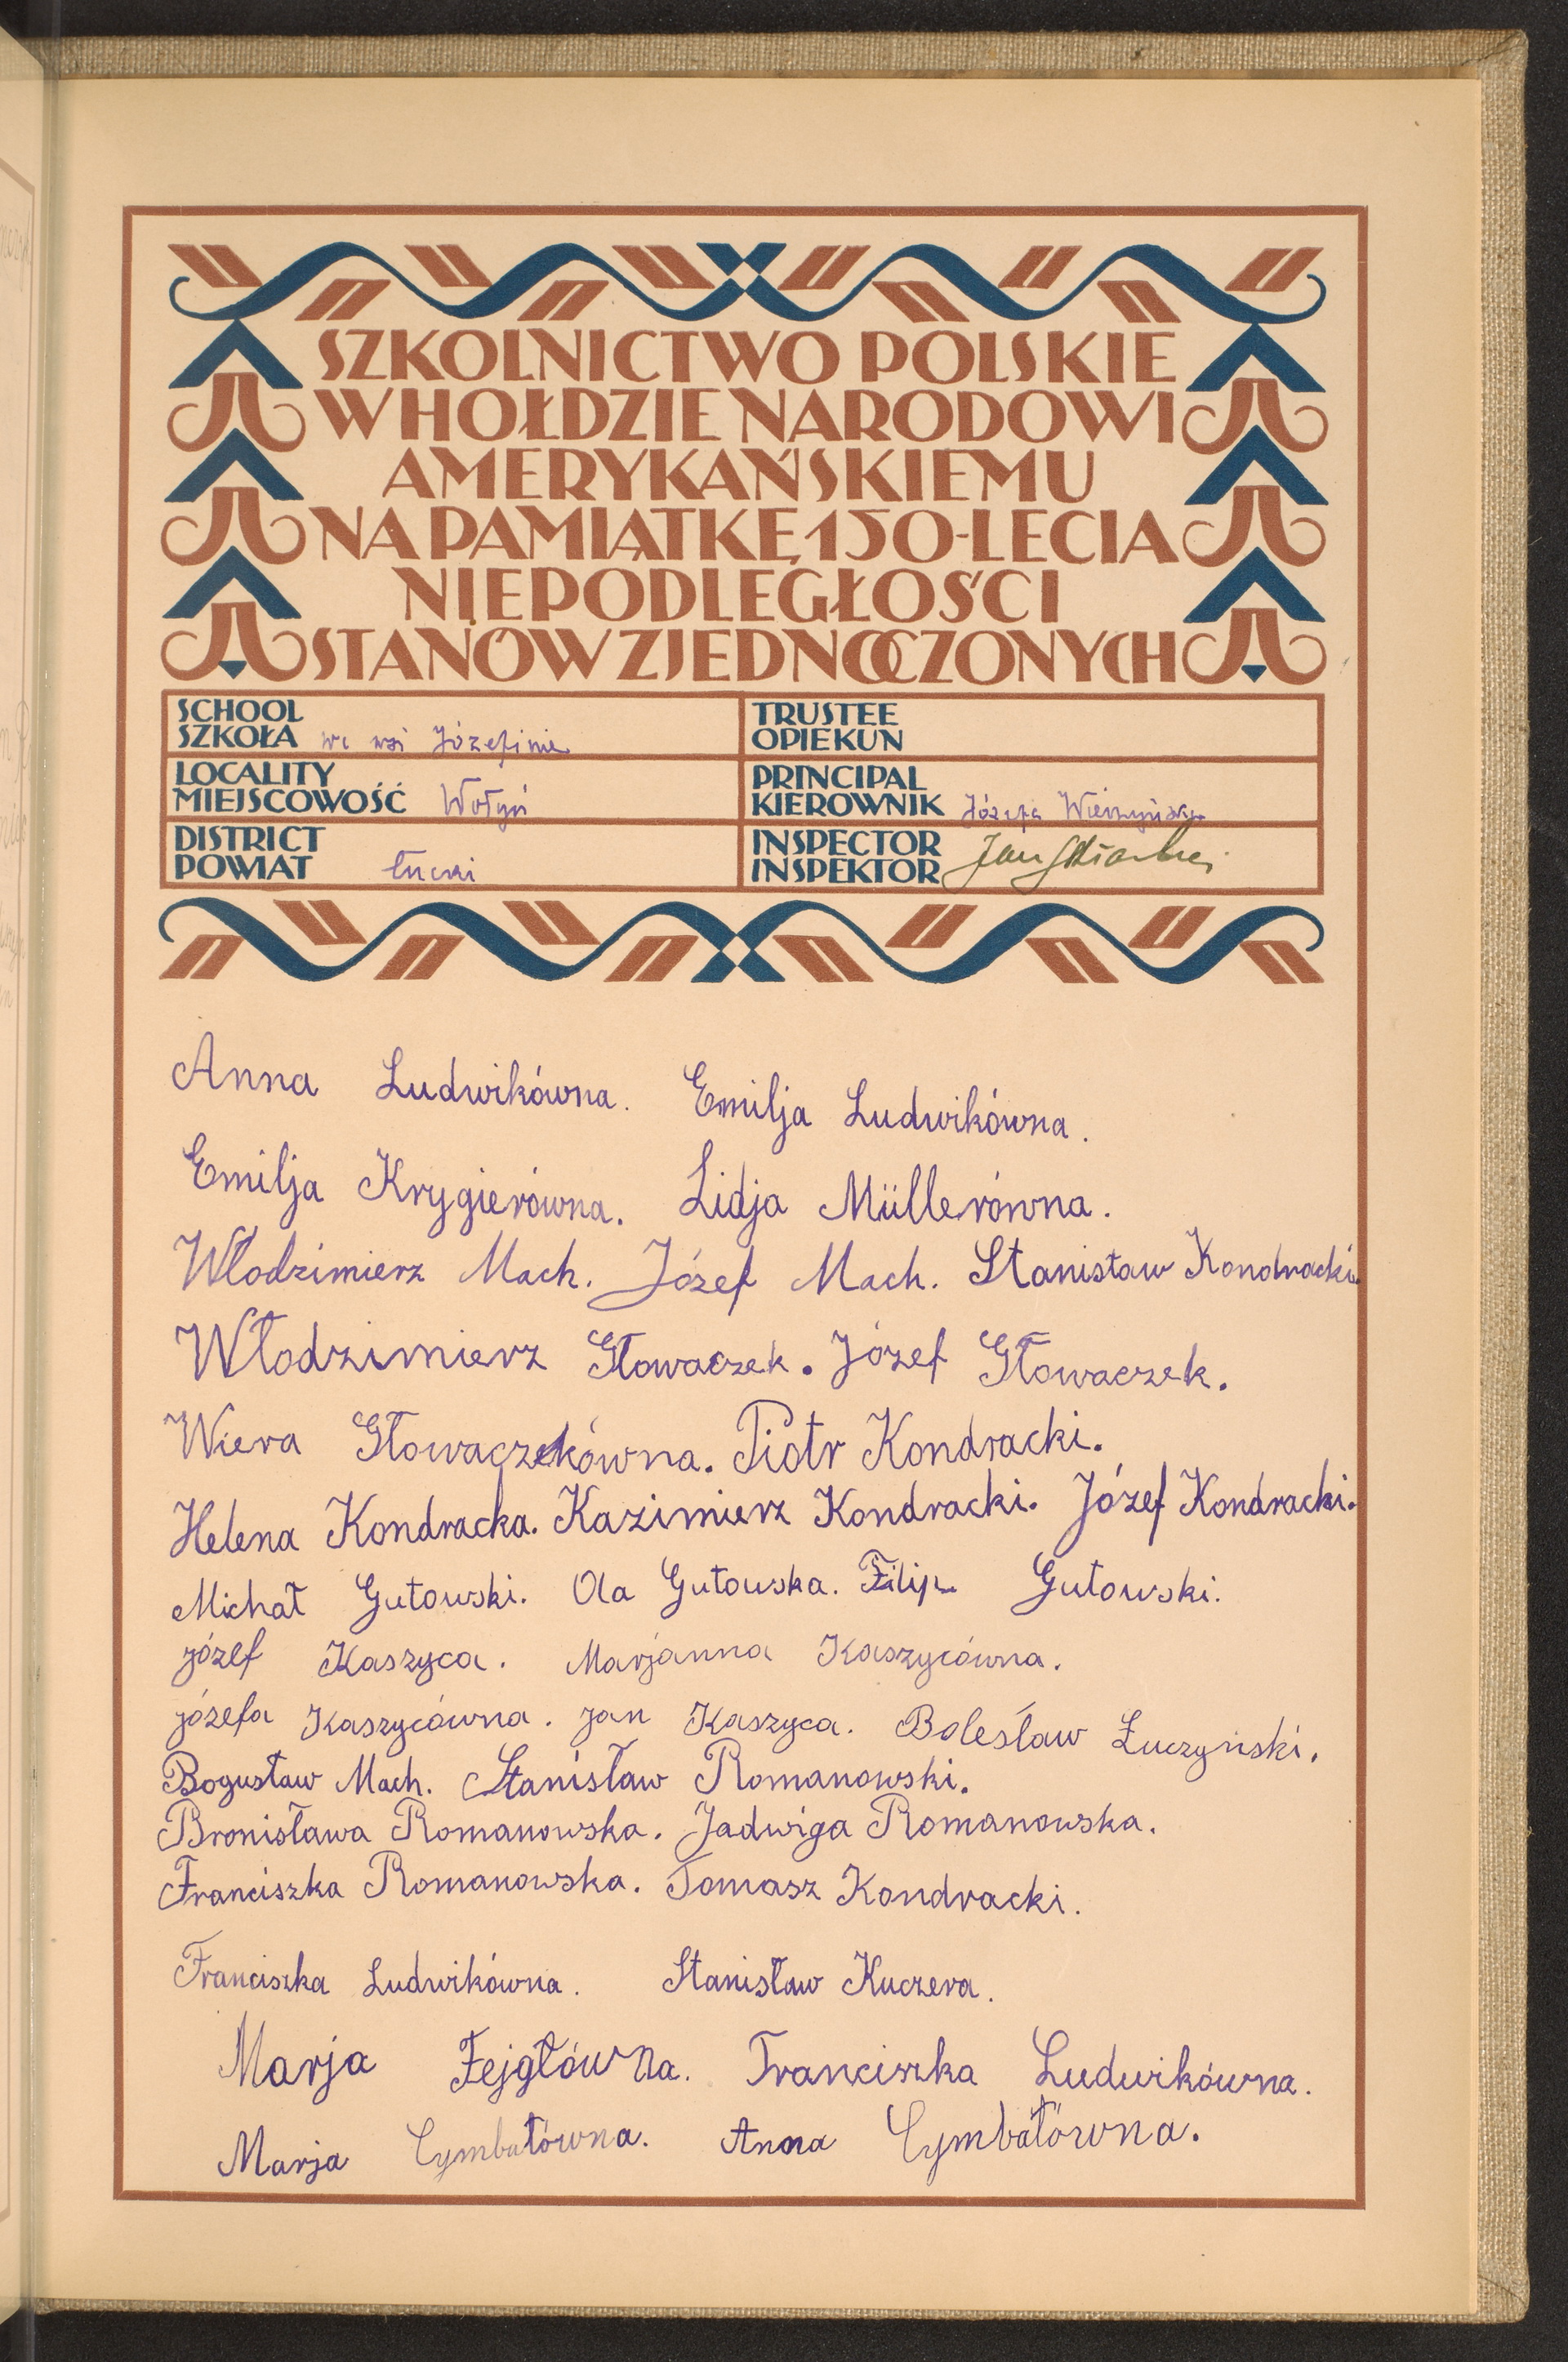 SZKOLNICTWO POLSKIE
W HOŁDZIE NARODOWI
AMERYKAŃSKIEMU
NA PAMIĄTKĘ 150-LECIA
NIEPODLEGŁOŚCI
STANÓW ZJEDNOCZONYCH
SCHOOL
SZKOŁA we wsi Józefinie
LOCALITY
MIEJSCOWOŚĆ Wołyń
DISTRICT
POWIAT Łucki
TRUSTEE
OPIEKUN
PRINCIPAL
KIEROWNIK Józefa
INSPECTOR
INSPEKTOR Jan
Anna Ludwikówna. Emilja Ludwikówna.
Emilja Krygierówna. Lidja Müllerówna.
Włodzimierz Mach. Józef Mach. Stanisław Kondracki.
Włodzimierz Głowaczek. Józef Głowaczek.
Wiera Głowaczekówna. Piotr Kondracki.
Helena Kondracka. Kazimierz Kondracki. Józef Kondracki.
Michał Gutowski. Ola Gutowska. Filip Gutowski.
Józef Kaszyca. Marjanna Kaszycówna.
Józefa Kaszycówna. Jan Kaszyca. Bolesław Łuczyński.
Bogusław Mach. Stanisław Romanowski.
Bronisława Romanowska. Jadwiga Romanowska.
Franciszka Romanowska. Tomasz Kondracki.
Franciszka Ludwikówna. Stanisław Kuczera.
Marja Fejgłówna. Franciszka Ludwikówna.
Marja Cymbałówna. Anna Cymbałówna.